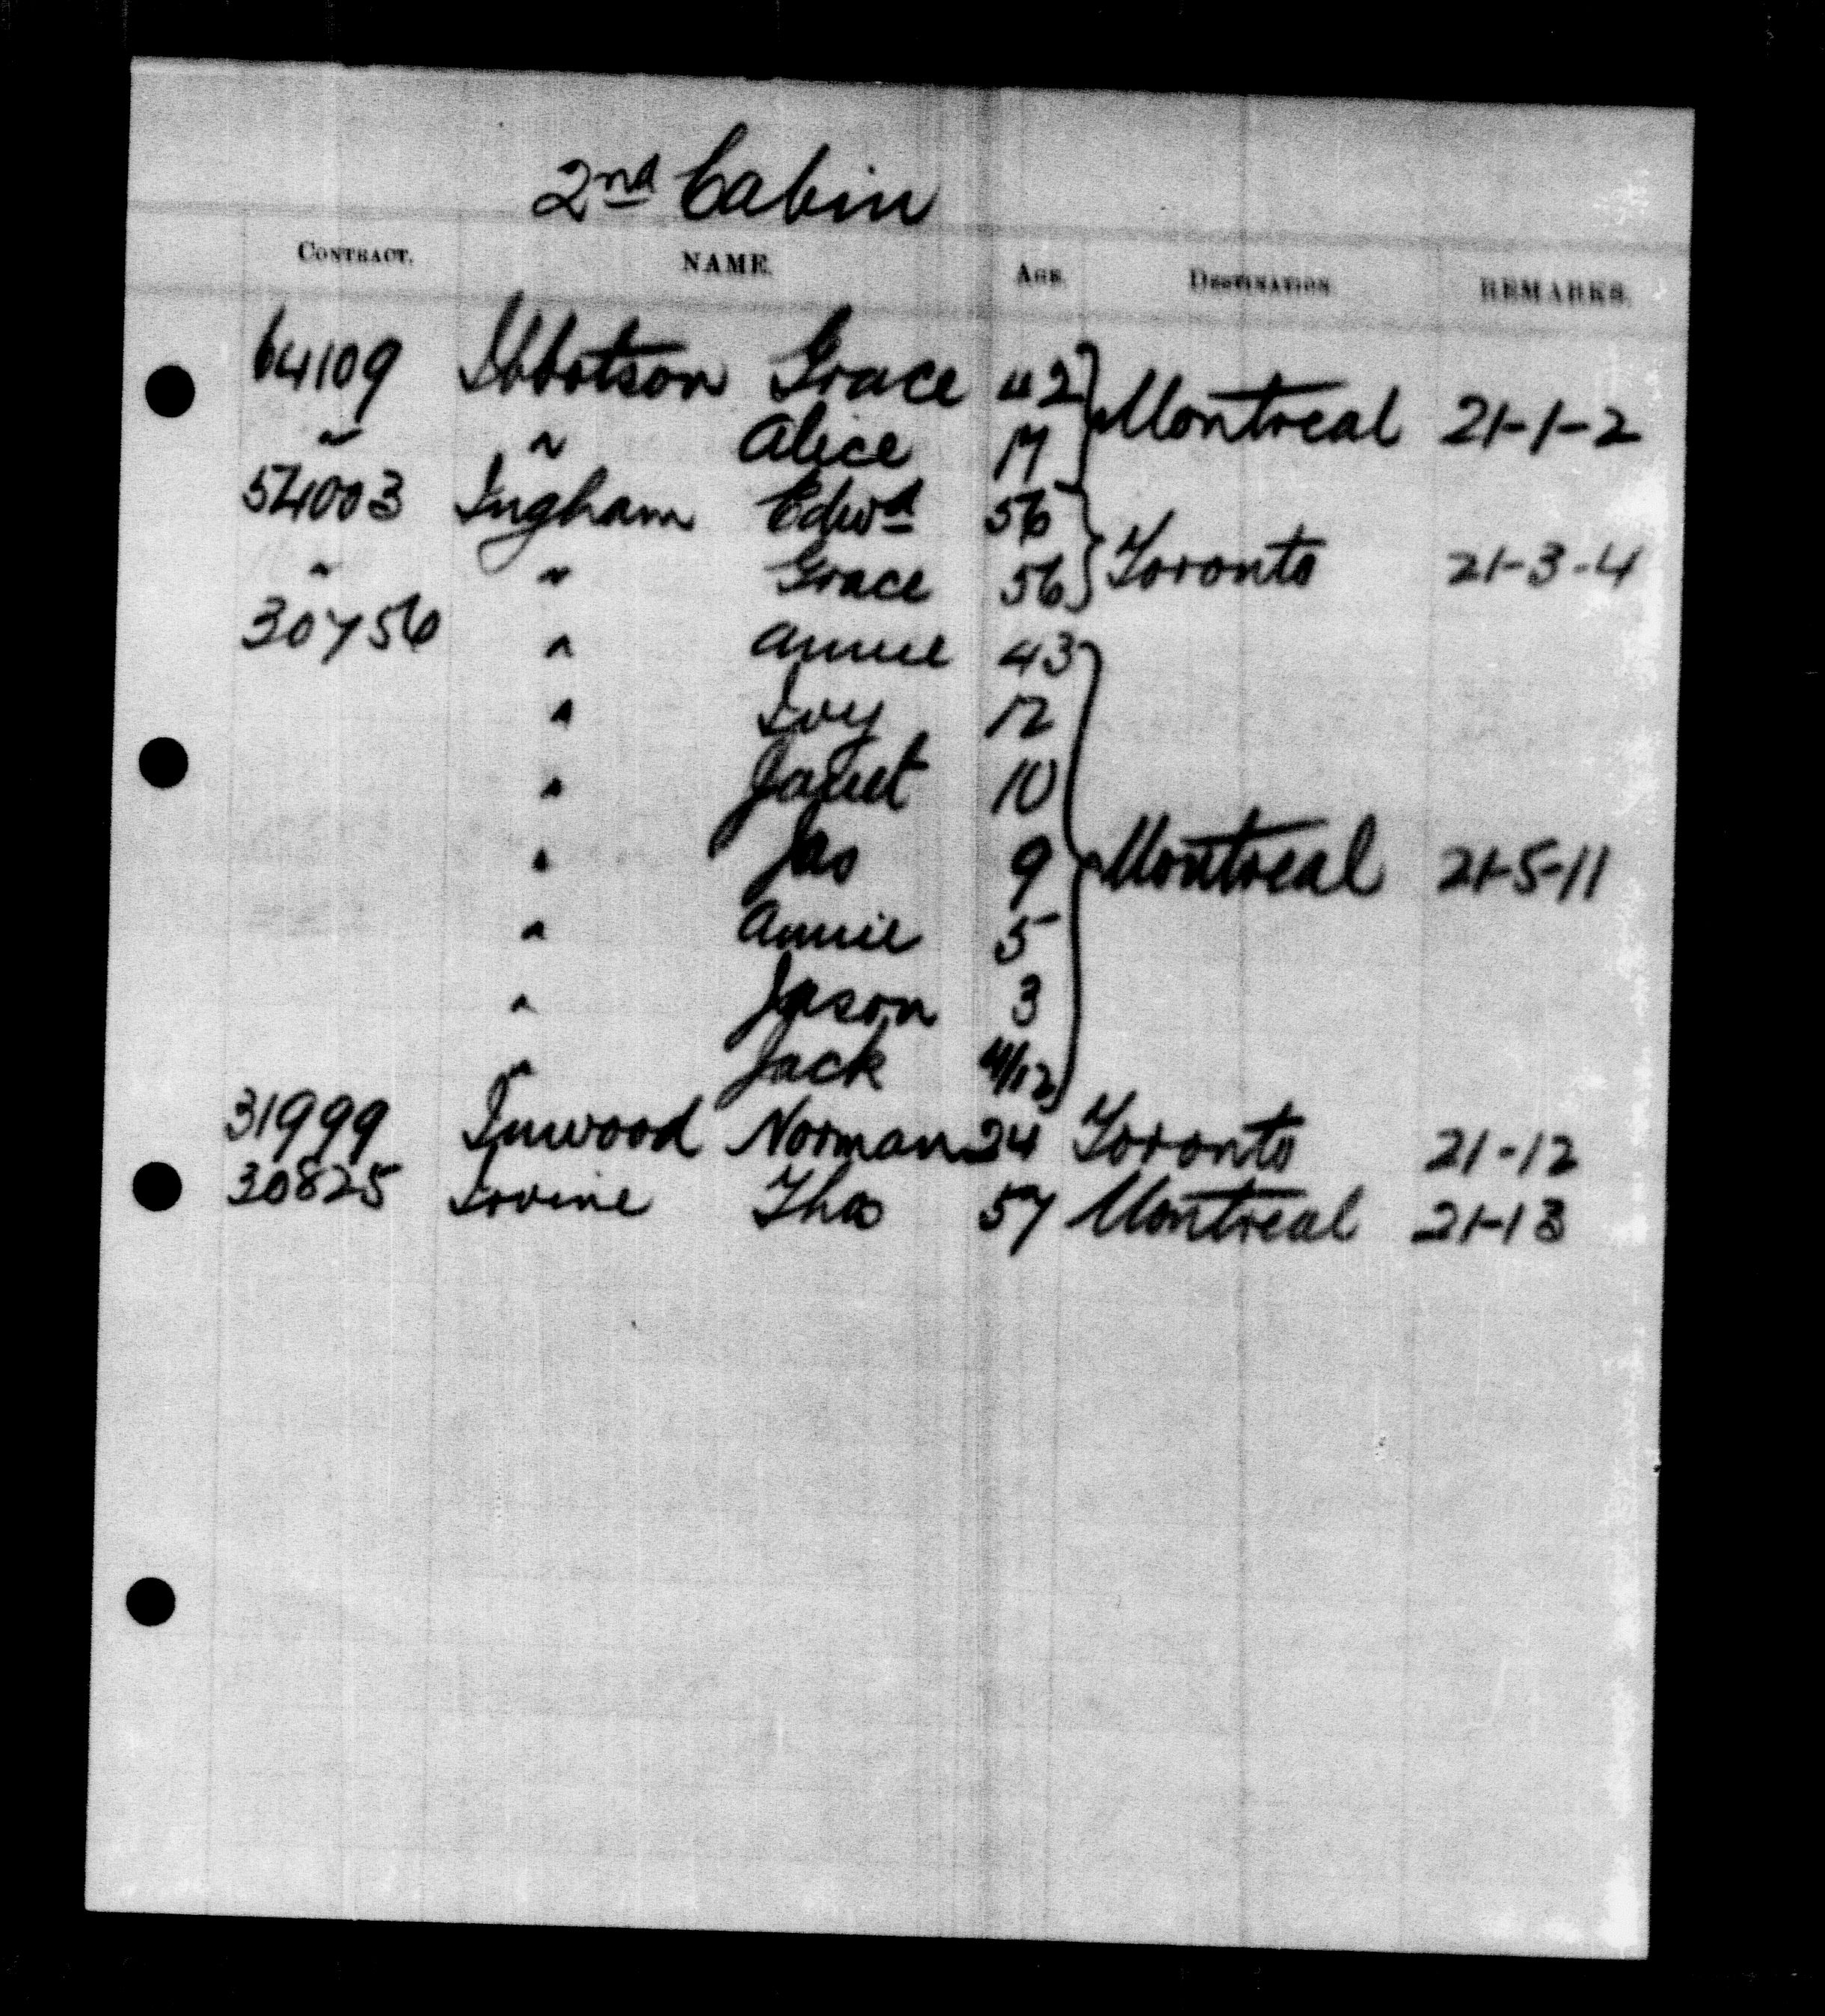 2nd Cabin
CONTRACT. NAME. AGE. DESTINATION REMARKS.
64109 Ibbotson Grace 42 Montreal 21-1-2
" " Alice 17
54003 Ingham Edwd 56 Toronto 21-3-4
" " Grace 56
30756 " Annie 43
" Ivy 12
" Janet 10
" Jas 9 Montreal 21-5-11
" Annie 5
" Jason 3
" Jack 4/12
31999 Inwood Norman 24 Toronto 21-12
30825 Irvine Thos 57 Montreal 21-13